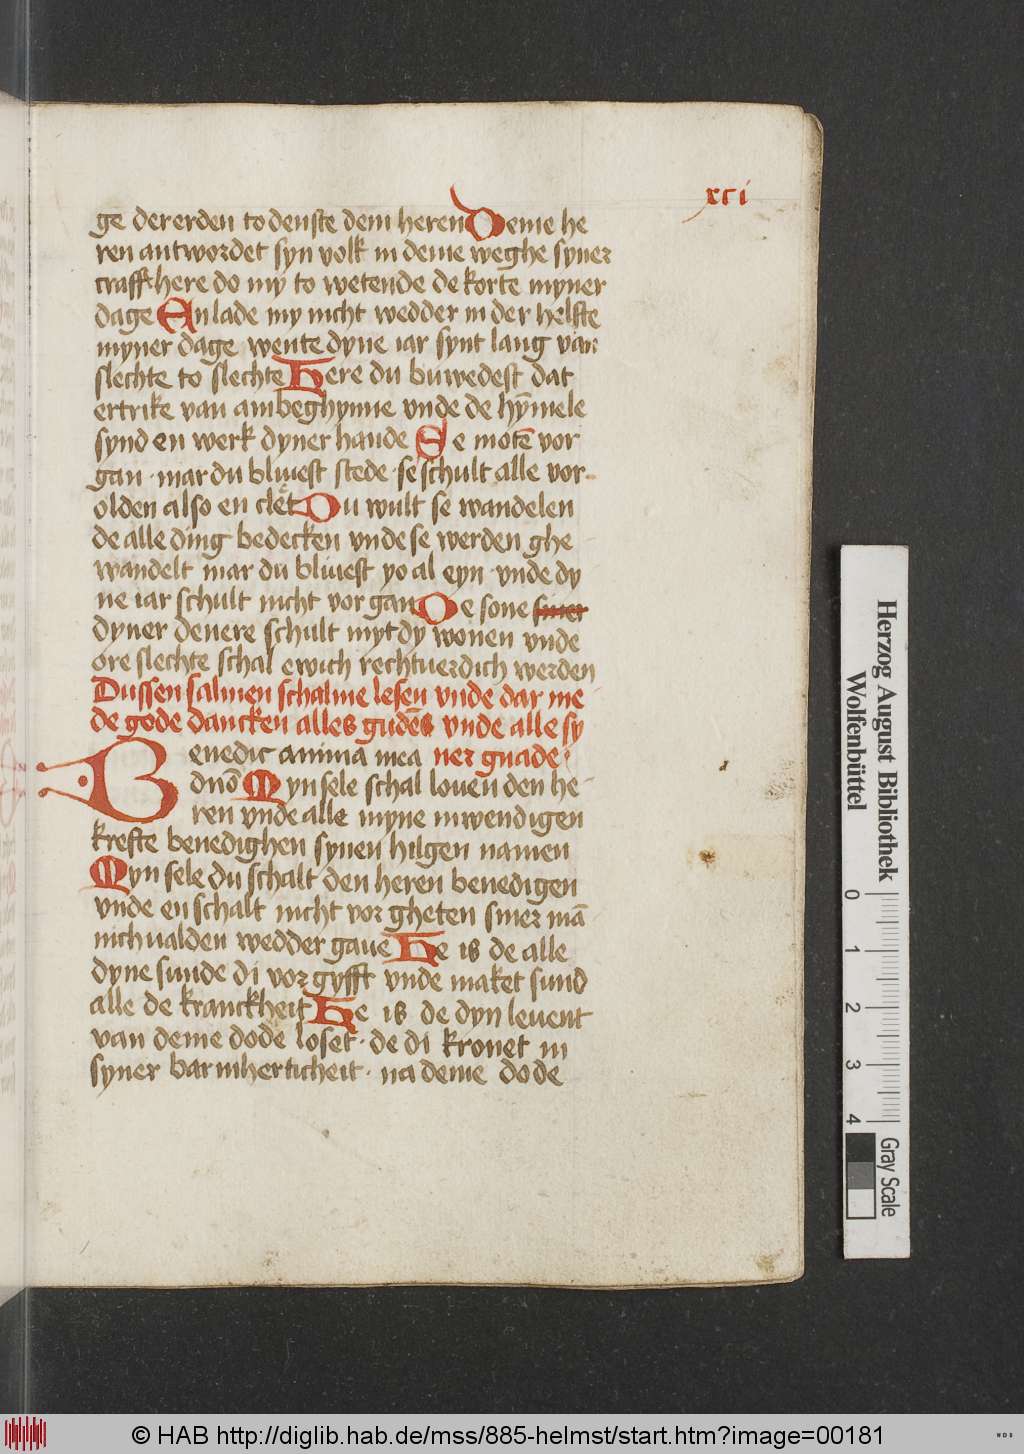 xci
ge dererden to denste dem heren Deme he
ren antwordet syn volk in deme weghe syner
craffthere do my to wetende de korte myner
dage Enlade my nicht wedder in der helfte
myner dage wente dyne iar synt lang van
slechte to slechte Here du buwedest dat
ertrike van ambeghynne vnde de hȳmele
synd en werk dyner hande Se motē vor
gan · mar du bliuest stede · se schult alle vor
olden also en clet Du wult se wandelen
de alle ding bedecken vnde se werden ghe
wandelt mar du bliuest yo al eyn · vnde dy
ne iar schult nicht vor gan De sone siner
dyner denere schult myt dy wonen vnde
ore slechte schal ewich rechtuerdich werden
Dussen salmen schalme lesen vnde dar me
de gode dancken alles gudēs vnde alle sy
Benedic anima mea ner gnade ·
dnō Myn sele schal louen den he
ren vnde alle myne inwendigen
krefte benedighen synen hilgen namen
Myn sele du schalt den heren benedigen
vnde en schalt nicht vor gheten siner mā
nichualden wedder gaue He is de alle
dyne sunde di vor gyfft vnde maket sund
alle de kranckheit He is de dyn leuent
van deme dode loset · de di kronet in
syner barmherticheit · na deme dode
Herzog August Bibliothek
Wolfenbüttel
0 1 2 3 4
Gray Scale
© HAB http://diglib.hab.de/mss/885-helmst/start.htm?image=00181